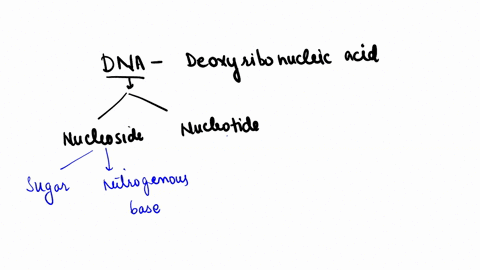 DNA - Deoxyribonucleic acid
Nucleoside Nucleotide
Sugar Nitrogenous
base